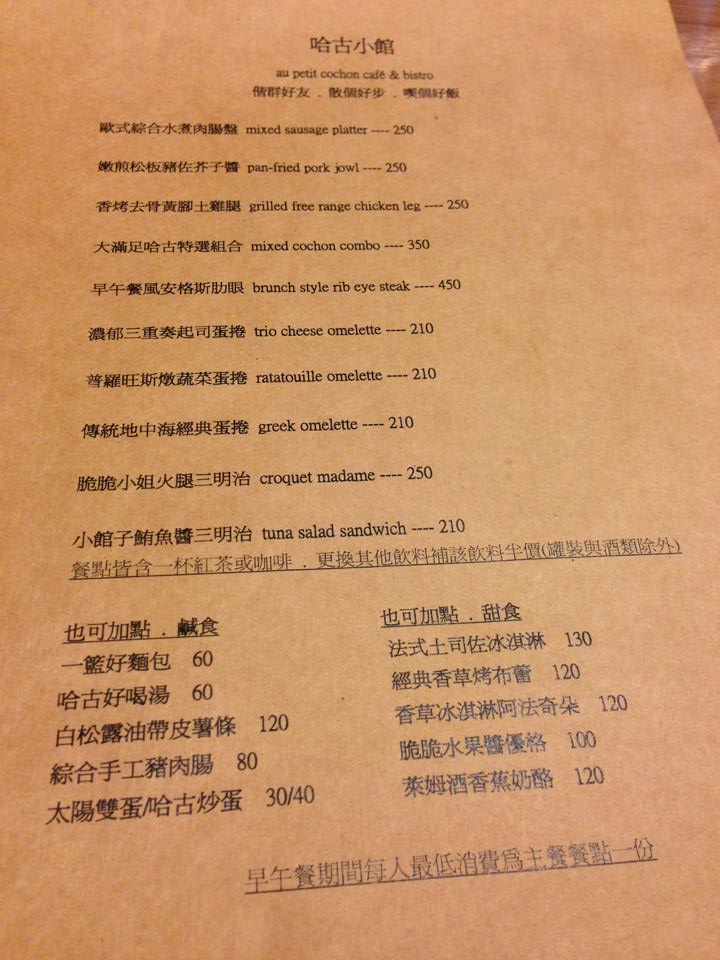 哈古小館
au petit cochon café & bistro
偕群好友 . 散個好步 . 喫個好飯
歐式綜合水煮肉腸盤 mixed sausage platter ---- 250
嫩煎松板豬佐芥子醬 pan-fried pork jowl ---- 250
香烤去骨黃腳土雞腿 grilled free range chicken leg ---- 250
大滿足哈古特選組合 mixed cochon combo ---- 350
早午餐風安格斯肋眼 brunch style rib eye steak ---- 450
濃郁三重奏起司蛋捲 trio cheese omelette ---- 210
普羅旺斯燉蔬菜蛋捲 ratatouille omelette ---- 210
傳統地中海經典蛋捲 greek omelette ---- 210
脆脆小姐火腿三明治 croquet madame ---- 250
小館子鮪魚醬三明治 tuna salad sandwich ---- 210
餐點皆含一杯紅茶或咖啡 . 更換其他飲料補該飲料半價(罐裝與酒類除外)
也可加點 . 鹹食
一籃好麵包 60
哈古好喝湯 60
白松露油帶皮薯條 120
綜合手工豬肉腸 80
太陽雙蛋/哈古炒蛋 30/40
也可加點 . 甜食
法式土司佐冰淇淋 130
經典香草烤布蕾 120
香草冰淇淋阿法奇朵 120
脆脆水果醬優格 100
萊姆酒香蕉奶酪 120
早午餐期間每人最低消費為主餐餐點一份